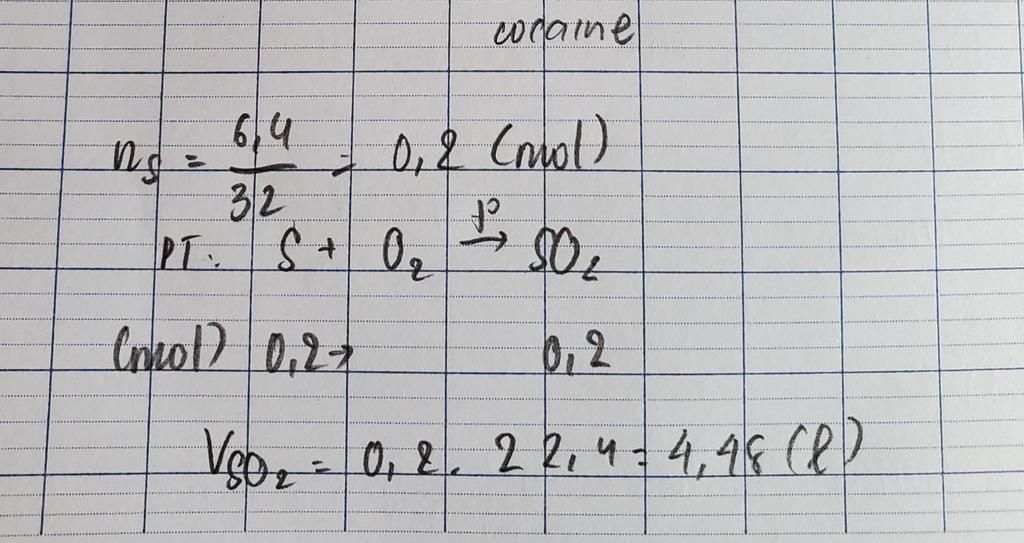 cocaine
nS = 6,4/32 = 0,2 (mol)
PT: S + O2 →t° SO2
(mol) 0,2→ 0,2
VSO2 = 0,2. 22,4 = 4,48 (l)